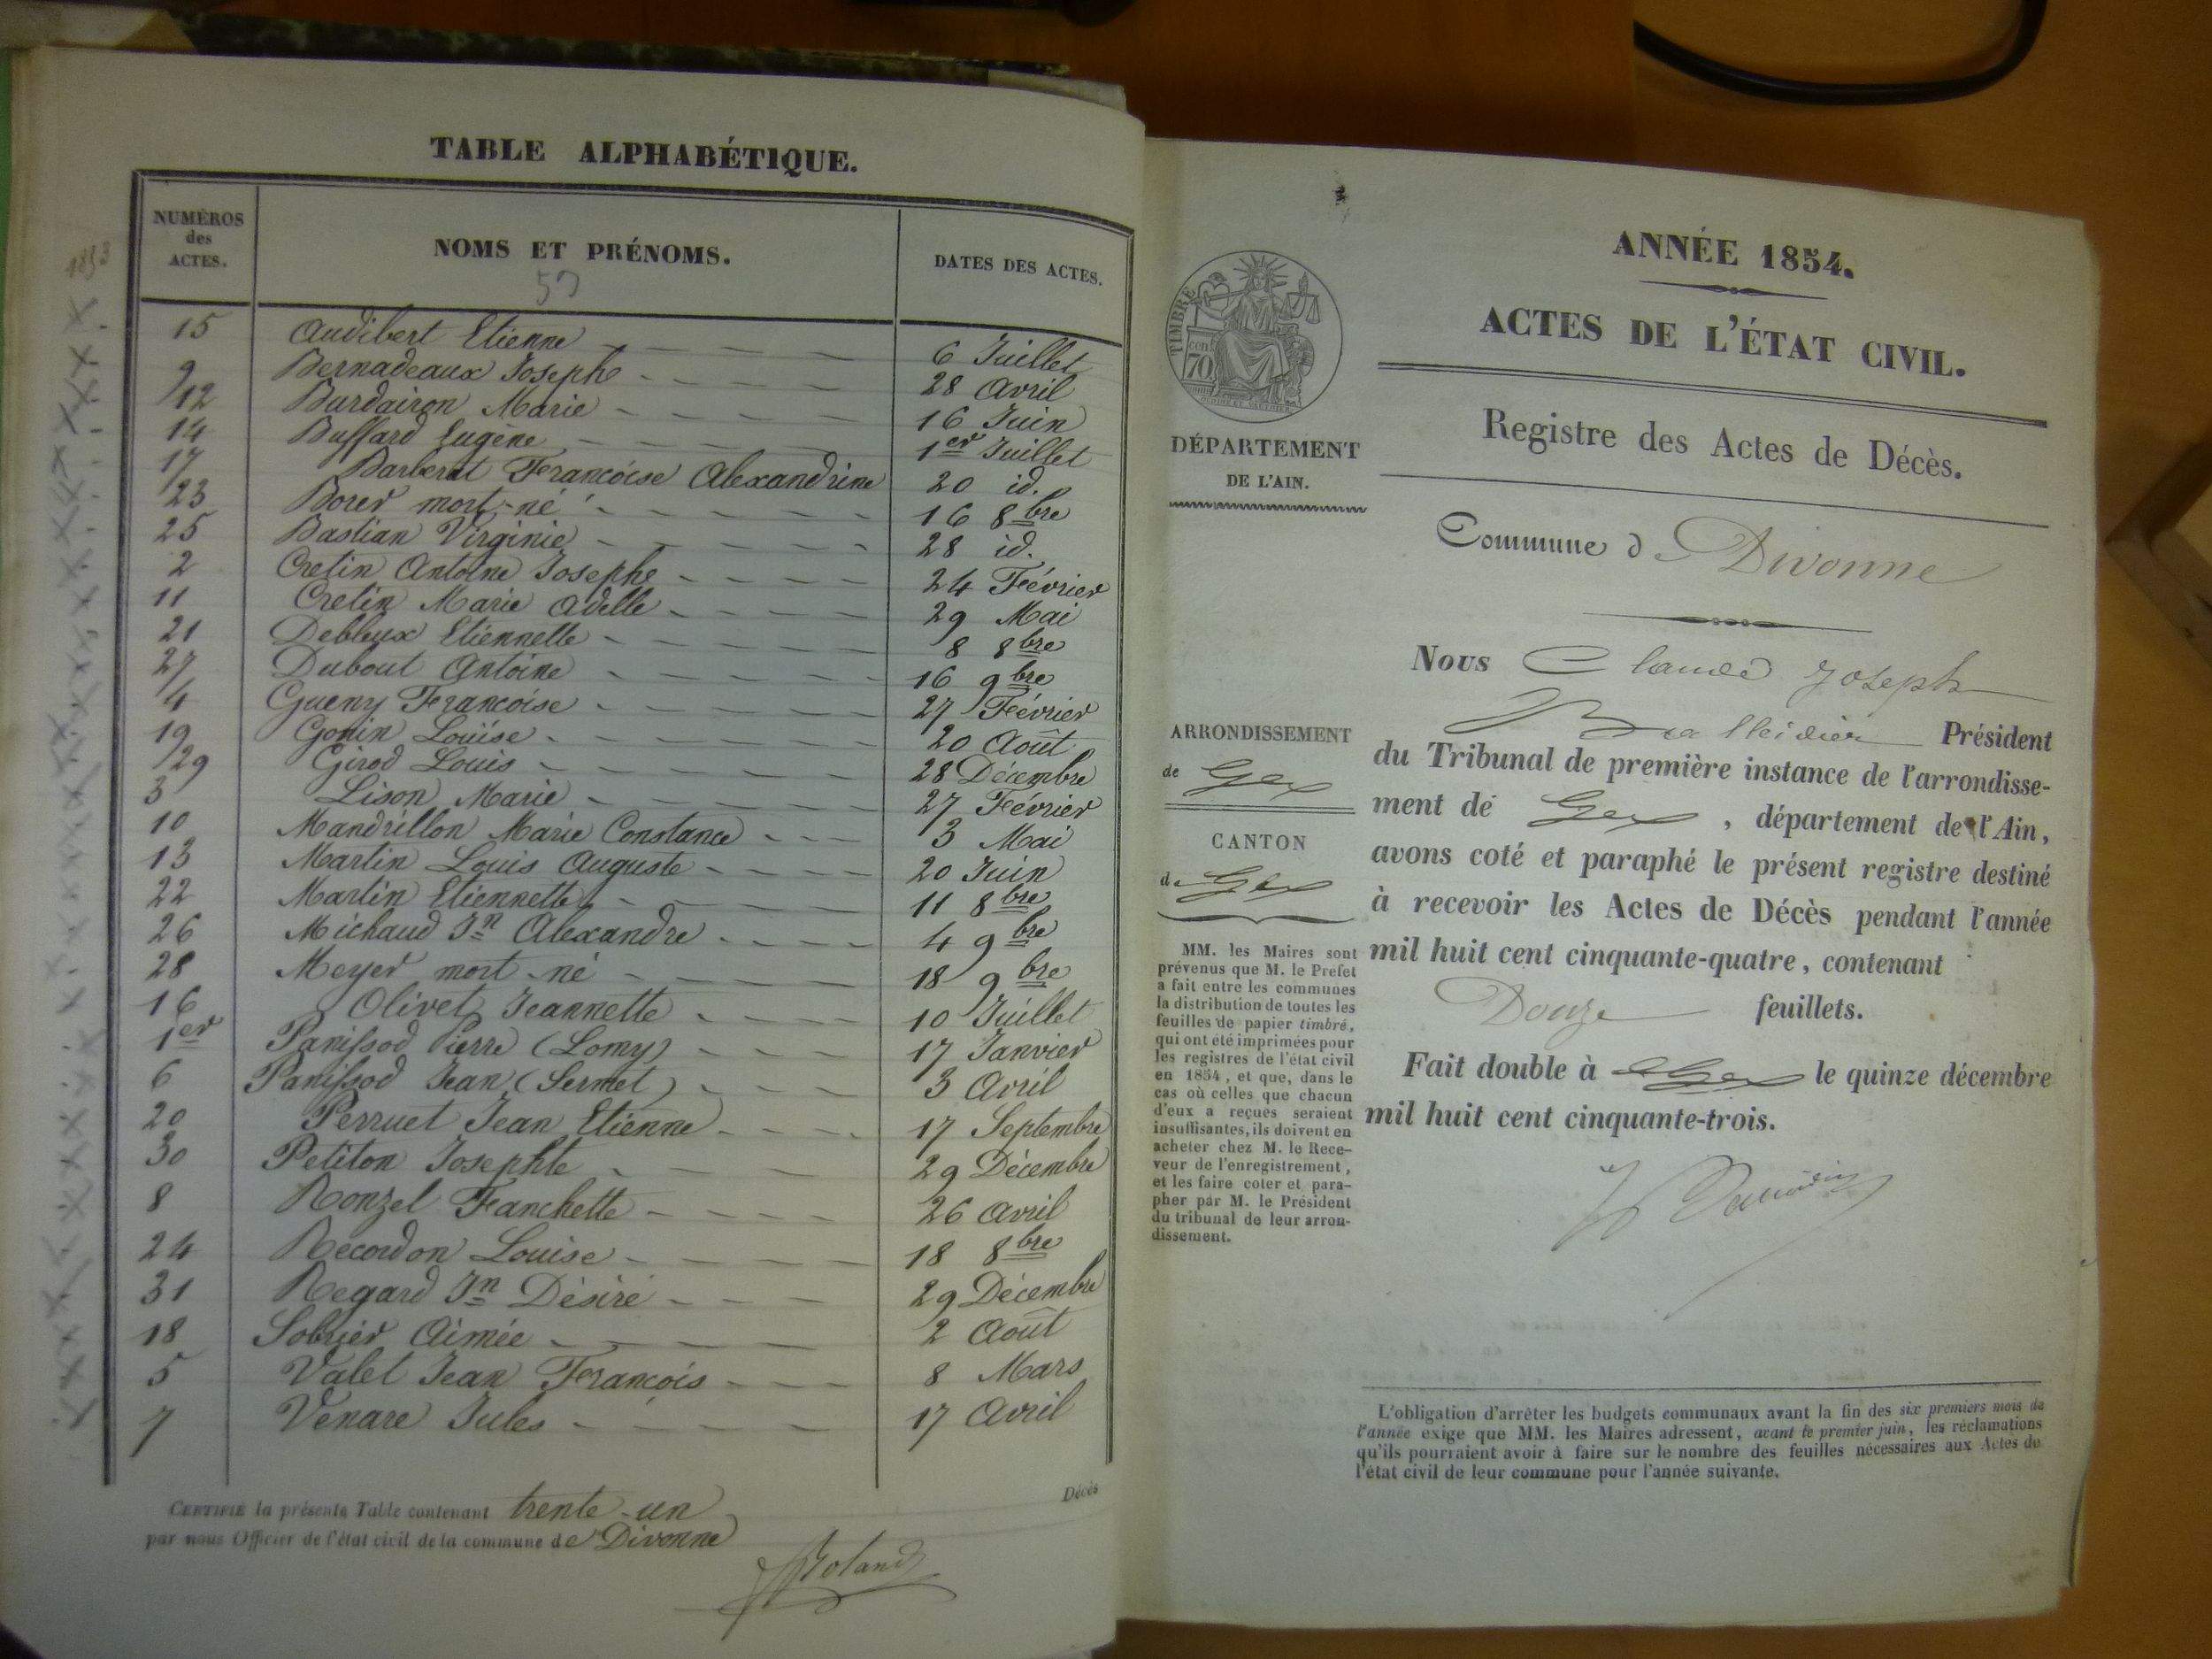 TABLE ALPHABÉTIQUE.
NUMÉROS
des
ACTES.
NOMS ET PRÉNOMS.
DATES DES ACTES.
1853
15 Audibert Etienne 6 Juillet
9 Bernadeaux Joseph 28 Avril
12 Burdairon Marie 16 Juin
14 Buffard Eugène 1er Juillet
17 Barberat Françoise Alexandrine 20 id.
23 Borer mort-né 16 8bre
25 Bastian Virginie 28 id.
2 Cretin Antoine Joseph 24 Février
11 Cretin Marie Adelle 29 Mai
21 Debleux Etiennette 8 8bre
27 Dubout Antoine 16 9bre
4 Gueny Françoise 27 Février
19 Gonin Louise 20 Août
29 Girod Louis 28 Décembre
3 Lison Marie 27 Février
10 Mandrillon Marie Constance 3 Mai
13 Martin Louis Auguste 20 Juin
22 Martin Etiennette 11 8bre
26 Michaud Jn Alexandre 4 9bre
28 Meyer mort-né 18 9bre
16 Olivet Jeannette 10 Juillet
1er Panissod Pierre (Lomy) 17 Janvier
6 Panissod Jean (Sermet) 3 Avril
20 Perruet Jean Etienne 17 Septembre
30 Petiton Josephte 29 Décembre
8 Ronzel Franchette 26 Avril
24 Recordon Louise 18 8bre
31 Regard Jn Désiré 29 Décembre
18 Sobrier Aimée 2 Août
5 Valet Jean François 8 Mars
7 Venare Jules 17 Avril
CERTIFIÉ la présente Table contenant trente-un
Décès
par nous Officier de l'état civil de la commune de Divonne
Roland
ANNÉE 1854.
ACTES DE L'ÉTAT CIVIL.
TIMBRE
70
DÉPARTEMENT
DE L'AIN.
Registre des Actes de Décès.
Commune d Divonne
ARRONDISSEMENT
de Gex
CANTON
de Gex
MM. les Maires sont
prévenus que M. le Préfet
a fait entre les communes
la distribution de toutes les
feuilles de papier timbré,
qui ont été imprimées pour
les registres de l'état civil
en 1854, et que, dans le
cas où celles que chacun
d'eux a reçues seraient
insuffisantes, ils doivent en
acheter chez M. le Rece-
veur de l'enregistrement,
et les faire coter et para-
pher par M. le Président
du tribunal de leur arron-
dissement.
Nous Claude Joseph
Président
du Tribunal de première instance de l'arrondisse-
ment de Gex, département de l'Ain,
avons coté et paraphé le présent registre destiné
à recevoir les Actes de Décès pendant l'année
mil huit cent cinquante-quatre, contenant
Douze feuillets.
Fait double à Gex le quinze décembre
mil huit cent cinquante-trois.
L'obligation d'arrêter les budgets communaux avant la fin des six premiers mois de
l'année exige que MM. les Maires adressent, avant le premier juin, les réclamations
qu'ils pourraient avoir à faire sur le nombre des feuilles nécessaires aux Actes de
l'état civil de leur commune pour l'année suivante.